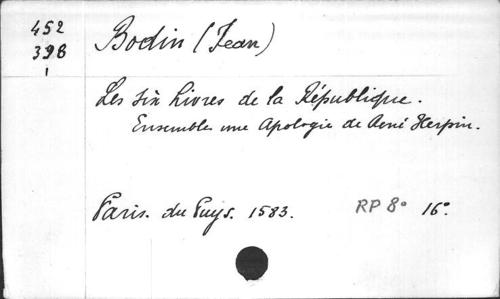 452
398
Bodin (Jean)
Les six Livres de la République.
Ensemble une Apologie de René Herpin.
Paris. du Puys. 1583. RP 8° 16°.